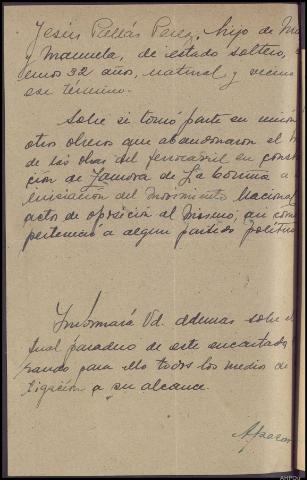 Jesús Pallás Perez, hijo de
y Manuela, de estado soltero,
32 años, natural y vecino
ese término.
Sobre si tomó parte en union
otros obreros que abandonaron el
de las obras del ferrocarril en const
ción de Zamora de La Coruña a
iniciación del Movimiento Nacional
actos de oposición al mismo; asi com
perteneció a algun partido politico
Informará Vd. ademas sobre el
tual paradero de este encartado
zando para ello todos los medios de
tigación a su alcance.
AHPOU